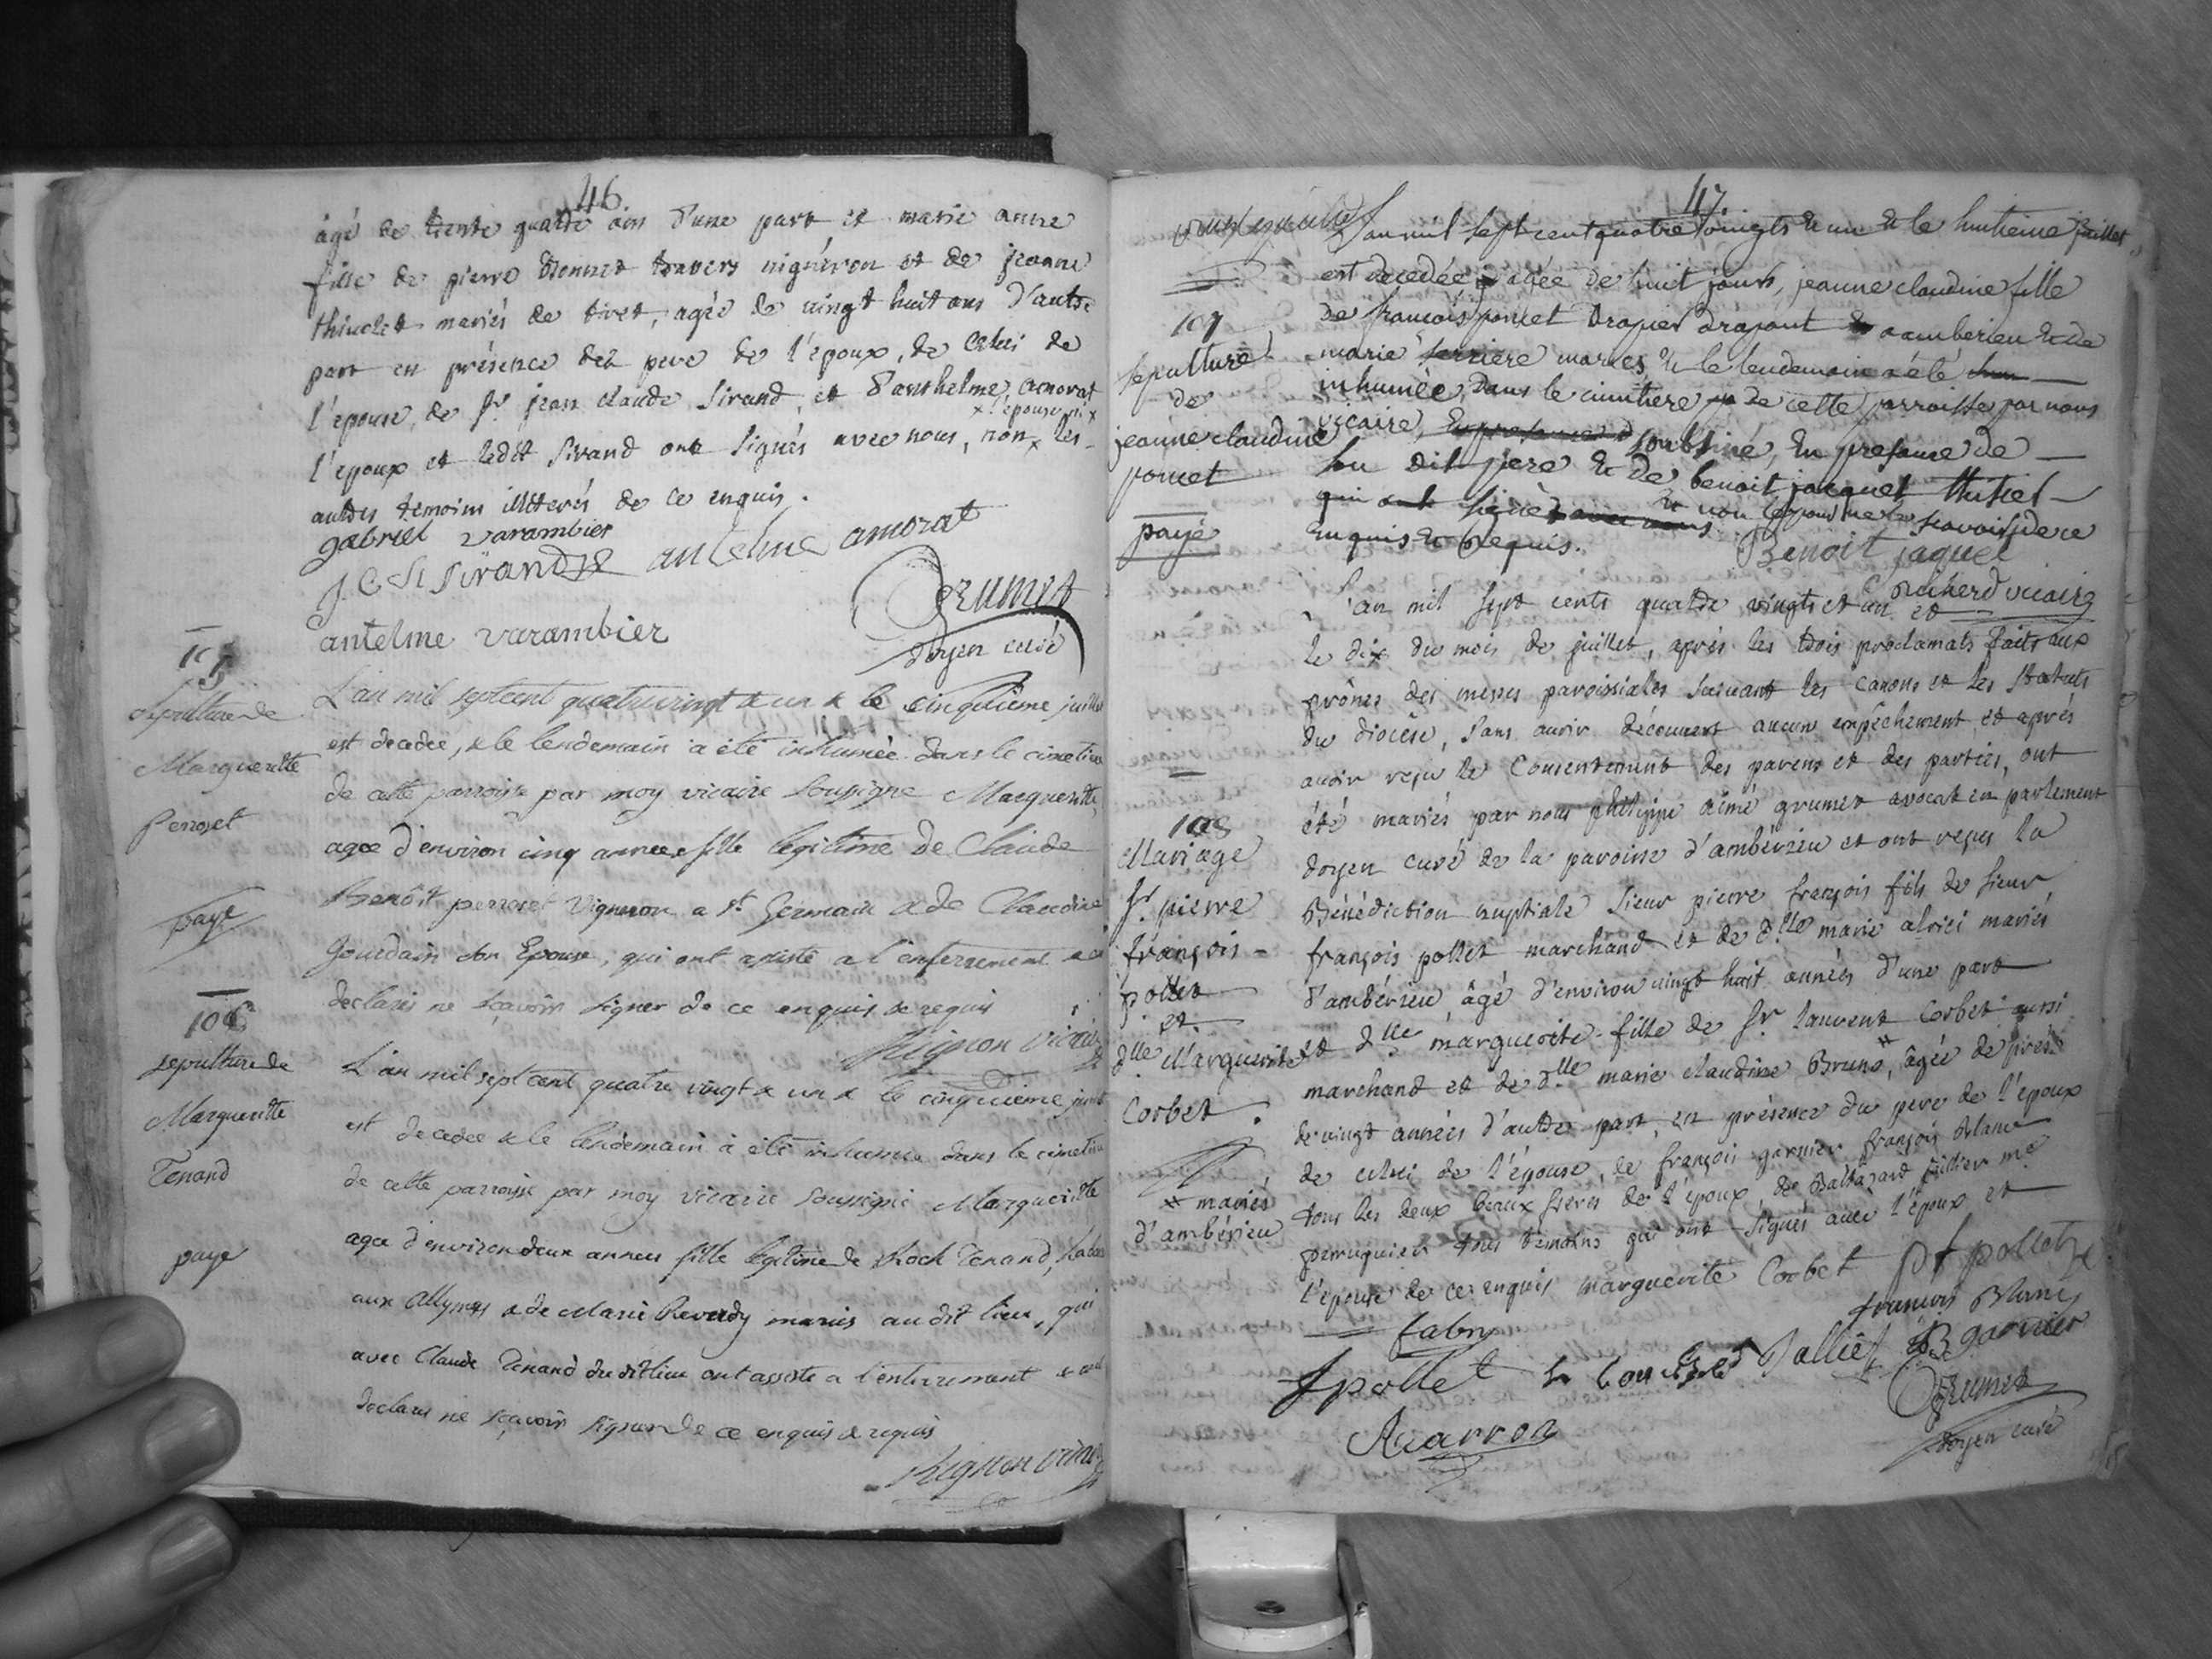 46
âgé de trente quatre ans d'une part et marie anne
fille de pierre bonnet travers vignéron et de jeanne
thivolet mariés de tiret, agée de vingt huit ans d'autre
part en présence des pere de l'epoux, de celui de
l'epouse, de Sr. jean claude Sirand, et d'anthelme amorat
x l'epouse ni x
l'epoux et ledit Sirand ont signés avec nous, non x les
autres temoins illiterés de ce enquis.
gabriel varambier
J. C. Sirand antelme amorat
Grumet
antelme varambier
doyen curé
105
Sepulture de
Margueritte
Perroset
paye
L'an mil septcent quatrevingt & un & le cinquieme juillet
est decedee, & le lendemain a été inhumée dans le cimetiere
de cette parroisse par moy vicaire soussigne Margueritte
agee d'environ cinq annees fille legitime de Claude
Benôit perroset Vigneron a St Germain & de Claudine
Gourdain son Epouse, qui ont assisté a l'enterrement & ont
declarés ne sçavoir signer de ce enquis & requis
vicaire
106
sepulture de
Margueritte
Tenand
paye
L'an mil septcent quatre vingt & un & le cinquieme juillet
est decedee & le lendemain à été inhumee dans le cimetiere
de cette parroisse par moy vicaire soussigné Margueritte
agee d'environ deux annees fille legitime de Roch Tenand,
aux allymes & de Marie Reverdy mariés au dit lieu, qui
avec Claude Tenand du dit lieu ont assisté a l'enterrement & ont
declarés ne sçavoir signer de ce enquis & requis
vicaire
47
107
sepulture
de
jeanne claudine
poncet
payé
L'an mil sept cent quatre vingts & un & le huitieme juillet
est decedée agée de huit jours, jeanne claudine fille
de françois poncet drapier drapant d'ambérieu & de
marie ferriere mariés, & le lendemain a été
inhumée, dans le cimitiere de cette parroisse par nous
vicaire, en presence d soubsiné, en presence de
son dit pere & de benoit jacquet
qui ont signé avec nous & non le pour ne le scavoir de ce
enquis & requis.
Benoit jaquet
vicaire
108
Mariage
Sr. pierre
françois
pollet
et
dlle Marguerite
Corbet.
# mariés
d'ambérieu
L'an mil sept cents quatre vingts et un et
le dix du mois de juillet, après les trois proclamats faits aux
prônes des messes paroissiales suivant les canons et les statuts
du diocèse, sans avoir découvert aucun empêchement et après
avoir reçu le consentement des parens et des parties, ont
été mariés par nous philippe aimé grumet avocat en parlement
doyen curé de la paroisse d'ambérieu et ont reçus la
Bénédiction nuptiale sieur pierre françois fils de sieur
françois pollet marchand et de dlle marie alrici mariés
d'ambérieu, âgé d'environ vingt huit années d'une part
et dlle marguerite fille de Sr laurent Corbet aussi
marchand et de dlle marie claudine Bruno #, âgée de près
de vingt années d'autre part, en présence du pere de l'epoux
de celui de l'épouse, de françois garnier françois Blanc
tous les deux beaux freres de l'epoux, de Baltazard me
peruquier tous témoins qui ont signés avec l'époux et
l'épouse de ce enquis Marguerite Corbet pf pollet
fabry françois Blanc
fpollet B garnier
Grumet
doyen curé